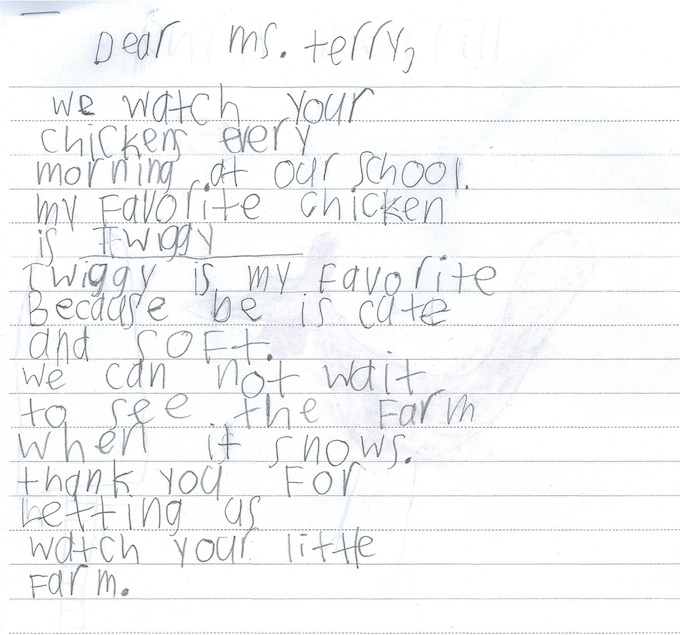 Dear ms. terry,
we watch your
chickens every
morning at our school.
my Favorite chicken
is Twiggy
Twiggy is my Favorite
Because be is cute
and SOFt.
we can not wait
to see the Farm
when it snows.
thank you For
Letting us
watch your little
Farm.